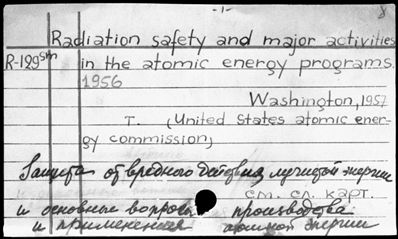 -1-
8
Radiation safety and major activities
R-129sm in the atomic energy programs.
1956
Washington, 1957
T. (United States atomic ener-
gy commission)
Защита от вредного действия лучистой энергии
см. сл. карт.
и основные вопросы производства
и применения атомной энергии